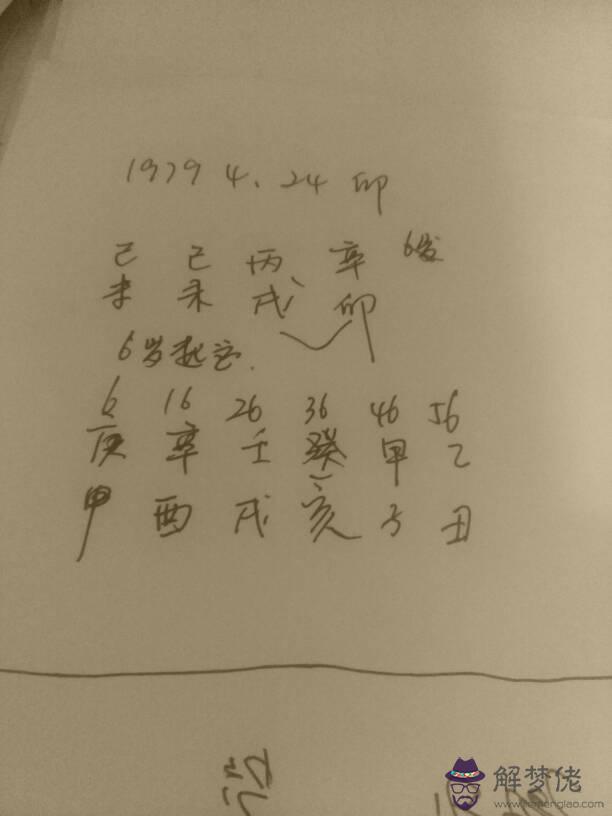 1979 4. 24 卯
己 己 丙 辛 6岁
未 未 戌 卯
6岁起运.
6 16 26 36 46 56
庚 辛 壬 癸 甲 乙
申 酉 戌 亥 子 丑
解梦佬
www.jiemenglao.com